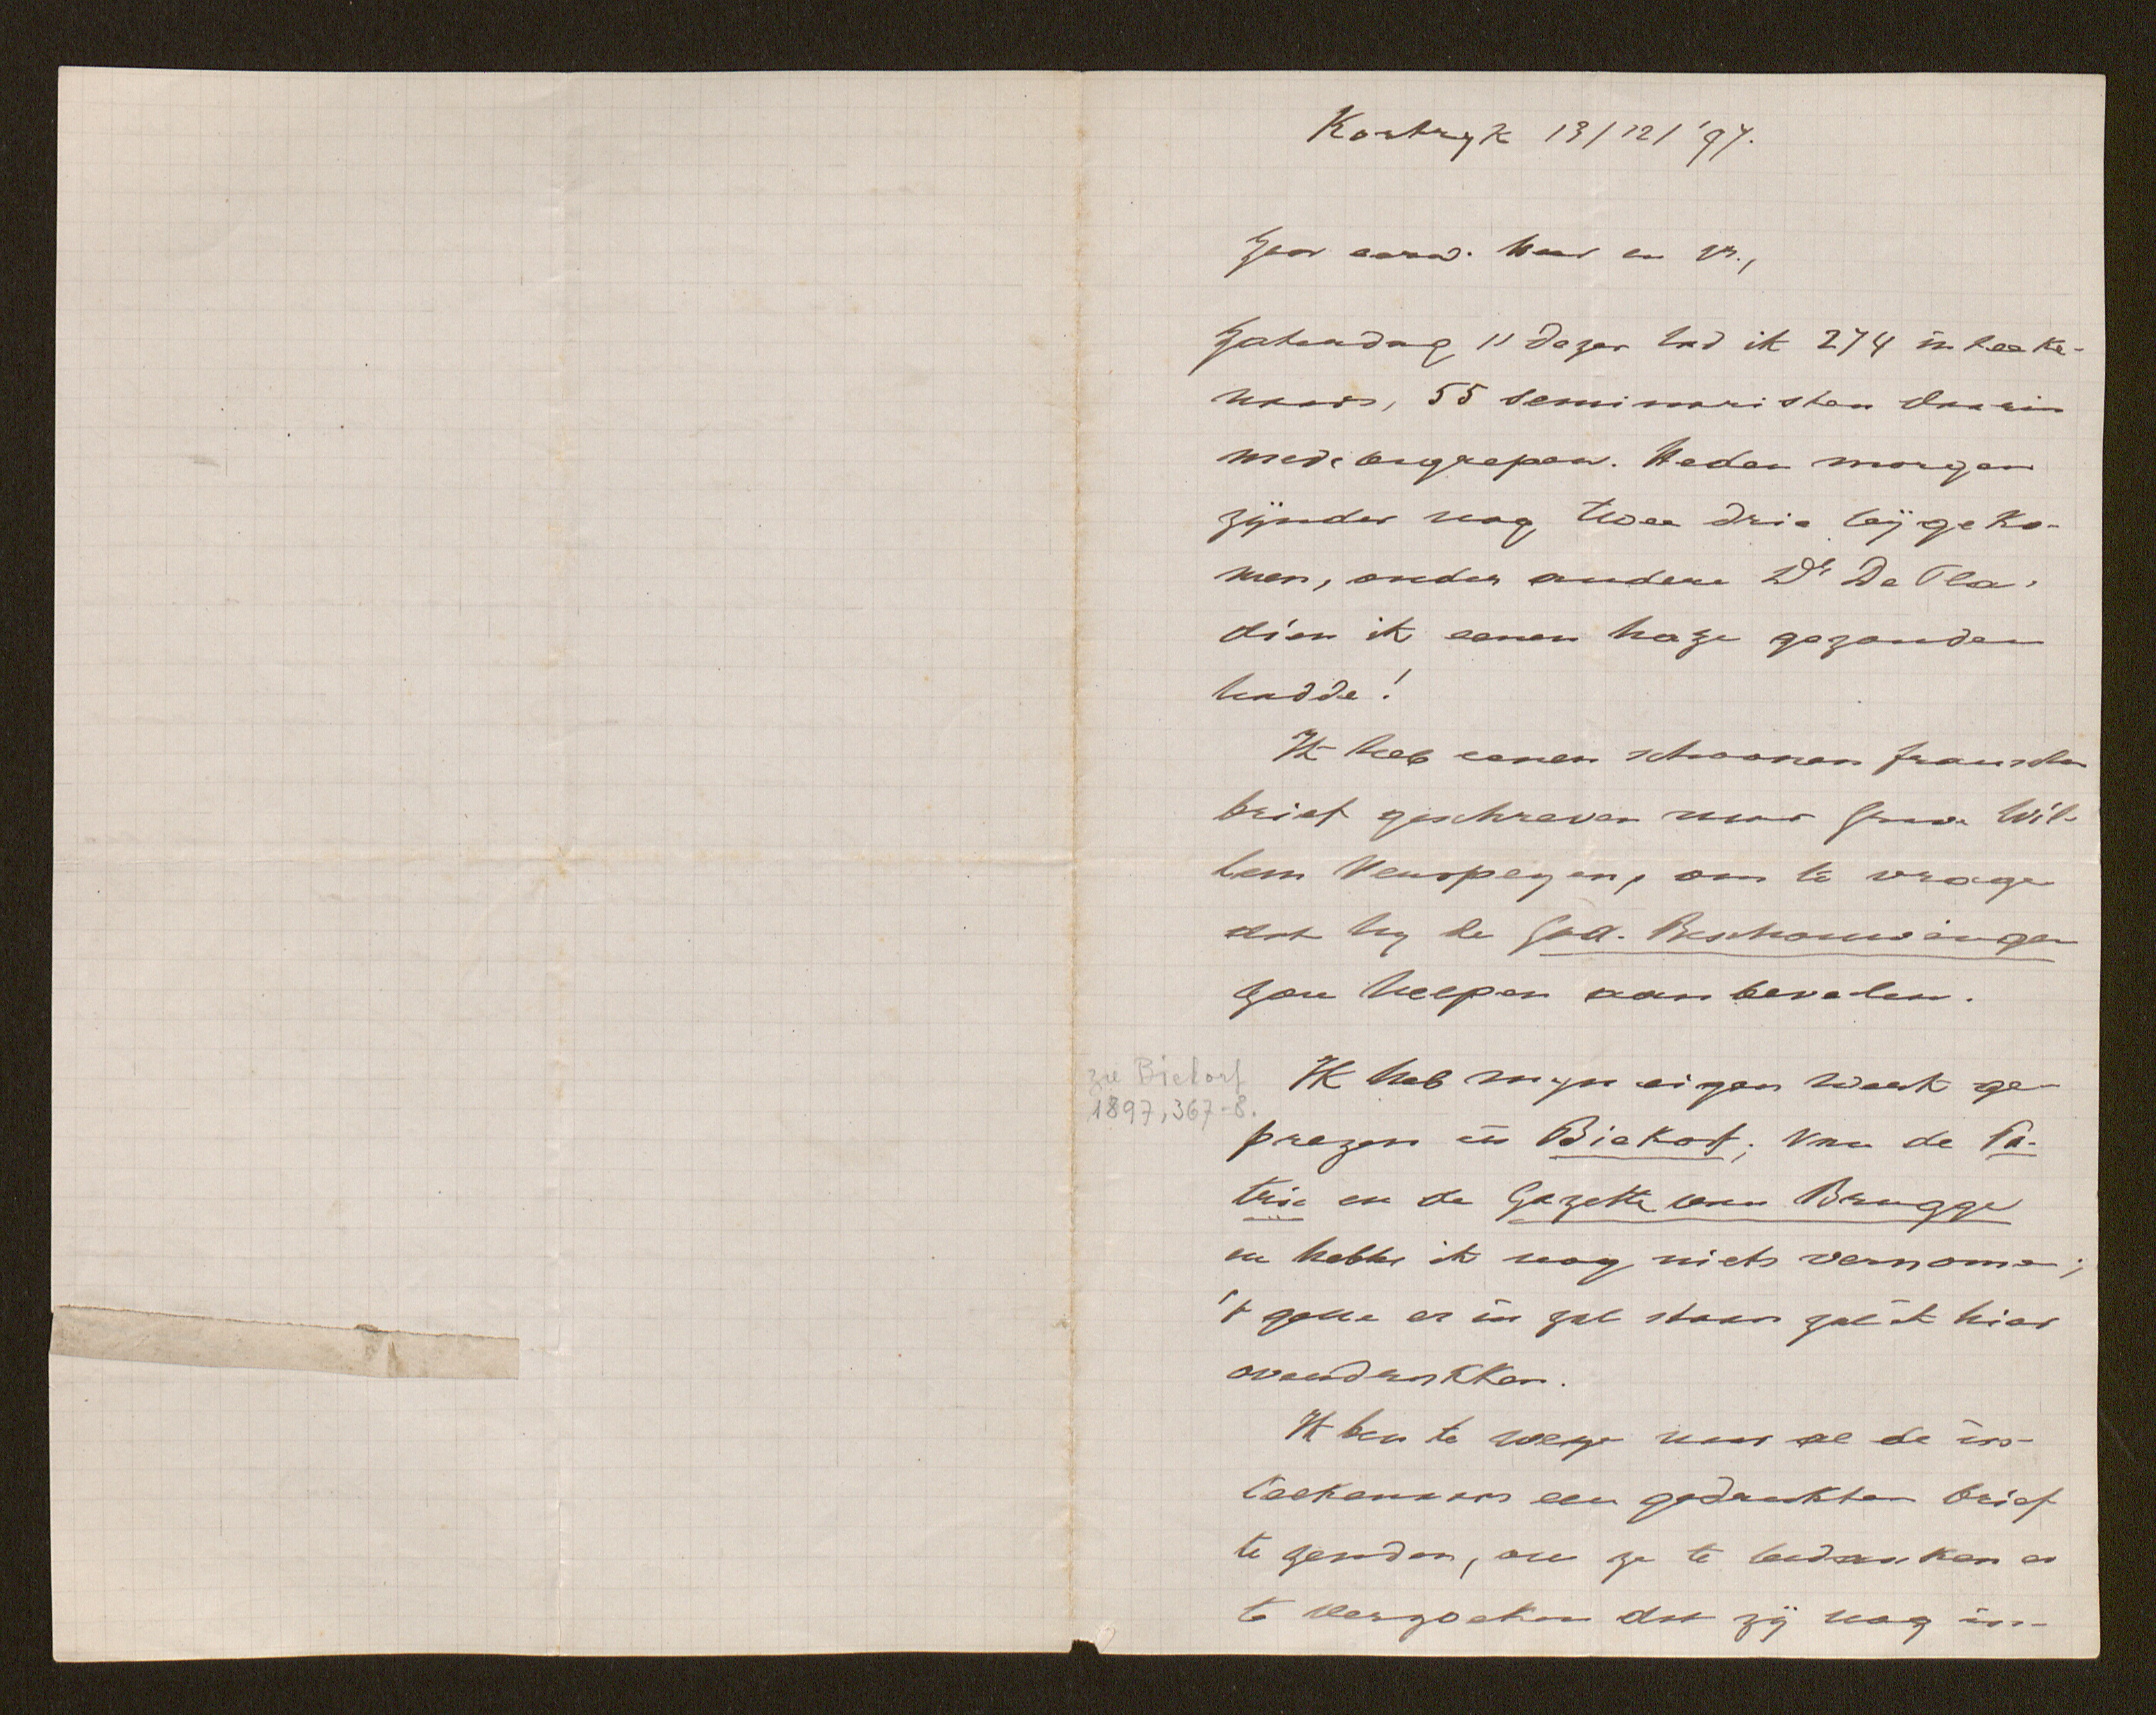 Kortryk 13/12/'97.
Zeer eerw. heer en vr.,
Zaterdag 11 dezer had ik 274 inteeke-
naars, 55 seminaristen daarin
medebegrepen. Heden morgen
zijnder nog twee drie bijgeko-
men, onder andere Dr De Pla,
dien ik eenen haze gezonden
hadde!
Ik heb eenen schoonen franschen
brief geschreven naar Grave Wil-
lem Verspeyen, om te vragen
dat hy de God. Beschouwingen
zou helpen aanbevelen.
zie Biekorf
1897, 367-8.
Ik heb myn eigen werk ge-
prezen in Biekorf; van de Pa-
trie en de Gazette van Brugge
en hebbe ik nog niets vernomen;
't gene er in zal staan zal ik hier
overdrukken.
Ik ben te wege naar al de in-
teekenaars een gedrukten brief
te zenden, om ze te bedanken en
te verzoeken dat zij nog in-